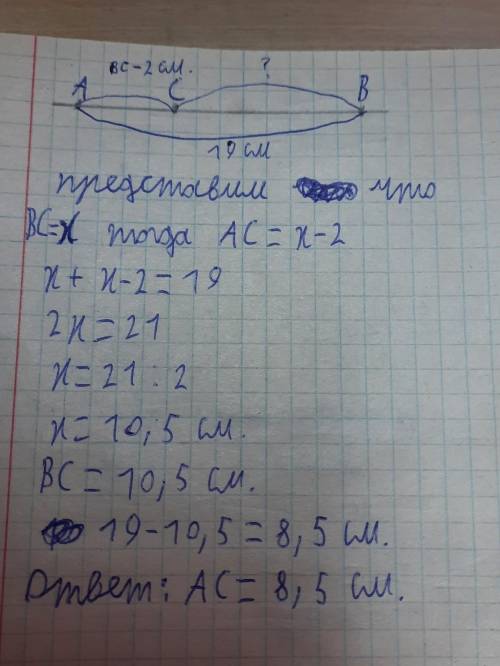 BC-2 см. ?
A C B
19 см
представим что
BC=x тогда AC = x-2
x + x-2=19
2x=21
x=21:2
x=10,5 см.
BC=10,5 см.
19-10,5=8,5 см.
Ответ: AC=8,5 см.